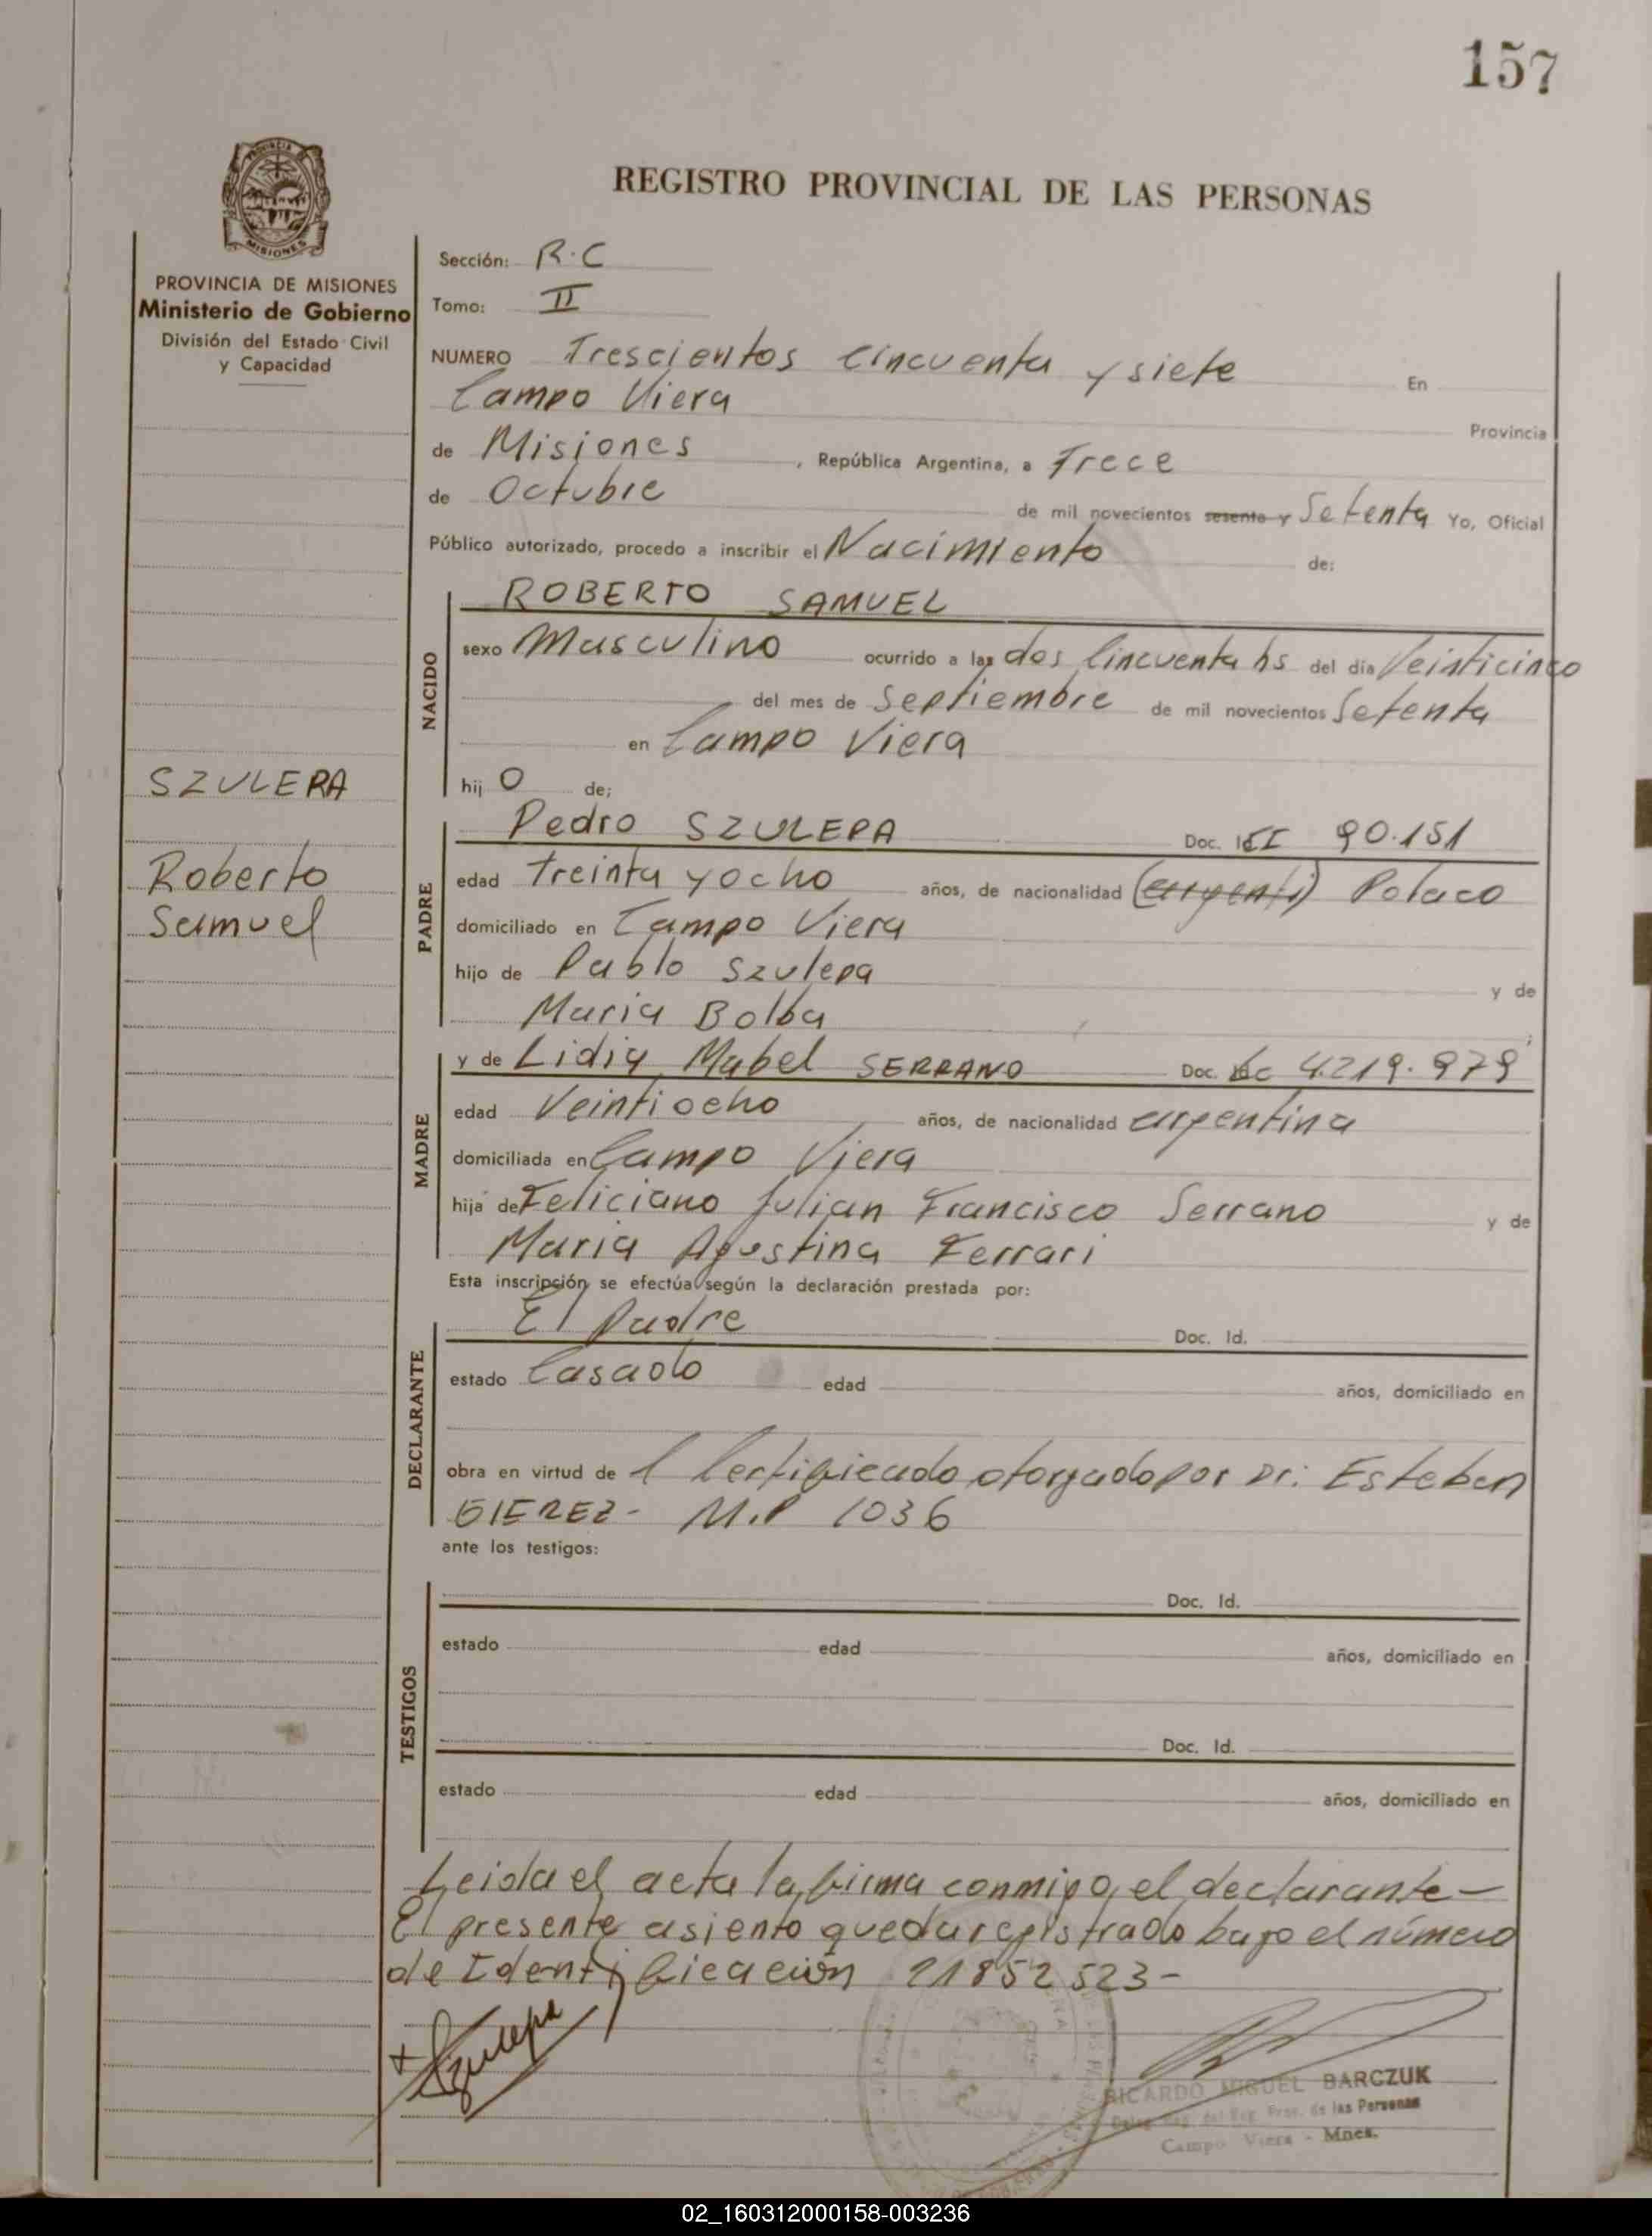 157
REGISTRO PROVINCIAL DE LAS PERSONAS
PROVINCIA DE
MISIONES
PROVINCIA DE MISIONES
Ministerio de Gobierno
División del Estado Civil
y Capacidad
SZULEPA
Roberto
Samuel
Sección: R.C
Tomo: II
NUMERO Trescientos cincuenta y siete En
Campo Viera Provincia
de Misiones, República Argentina, a Trece
de Octubre de mil novecientos sesenta y Setenta Yo, Oficial
Público autorizado, procedo a inscribir el Nacimiento de:
NACIDO
ROBERTO SAMUEL
sexo Masculino ocurrido a las dos Cincuenta hs del día Veinticinco
del mes de Septiembre de mil novecientos Setenta
en Campo Viera
hij o de;
PADRE
Pedro SZULEPA Doc. CI 90.151
edad treinta y ocho años, de nacionalidad (argenti) Polaco
domiciliado en Campo Viera
hijo de Pablo Szulepa y de
Maria Bolba
MADRE
y de Lidia Mabel SERRANO Doc. LC 4.219.979
edad Veintiocho años, de nacionalidad argentina
domiciliada en Campo Viera
hija de Feliciano Julian Francisco Serrano y de
Maria Agustina Ferrari
Esta inscripción se efectúa según la declaración prestada por:
DECLARANTE
El Padre Doc. Id.
estado Casado edad años, domiciliado en
obra en virtud de l Certificado otorgado por Dr: Esteban
GIEREZ- M.P 1036
ante los testigos:
TESTIGOS
Doc. Id.
estado edad años, domiciliado en
Doc. Id.
estado edad años, domiciliado en
Leida el acta la firma conmigo el declarante-
El presente asiento queda registrado bajo el número
de Identificación 21852523-
Szulepa
RICARDO MIGUEL BARCZUK
de las Personas
Campo Viera - Mnes.
02_160312000158-003236